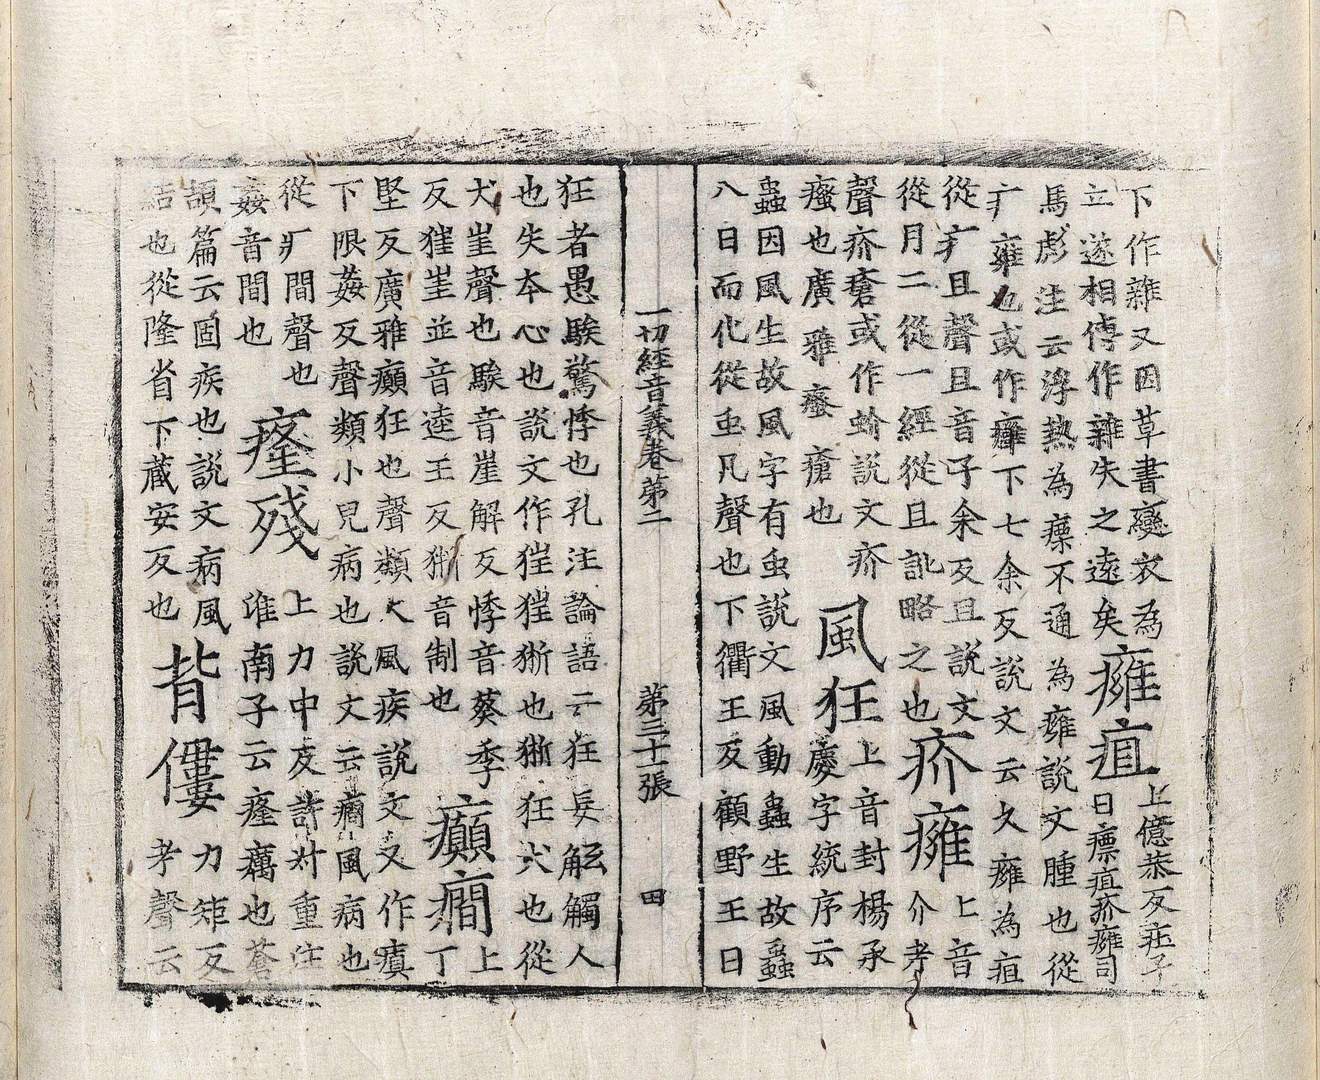 下作雜又因草書變衣為
立遂相傳作雜失之遠矣
癰疽
上億恭反莊子
曰瘭疽疥癰司
馬彪注云浮熱為瘭不通為癰說文腫也從
疒雍也或作癰下七余反說文云久癰為疽
從疒且聲且音子余反且說文
從月二從一經從且訛略之也
疥癰
上音
介考
聲疥瘡或作蚧說文疥
瘙也廣雅瘙瘡也
風狂
上音封楊承
慶字統序云
蟲因風生故風字有虫說文風動蟲生故蟲
八日而化從虫凡聲也下衢王反顧野王曰
一切經音義卷第二 第三十一張 田
狂者愚騃驚悸也孔注論語云狂妄觝觸人
也失本心也說文作狌狌狾也狾狂犬也從
犬㞷聲也騃音崖解反悸音葵季
反㹵㞷並音逵王反狾音制也
癲癇
上
丁
堅反廣雅癲狂也聲類大風疾說文又作瘨
下限姦反聲類小兒病也說文云癇風病也
從疒間聲也
姦音間也
癃殘
上力中反許對重注
淮南子云癃癘也蒼
頡篇云固疾也說文病風
結也從隆省下藏安反也
背僂
力矩反
考聲云